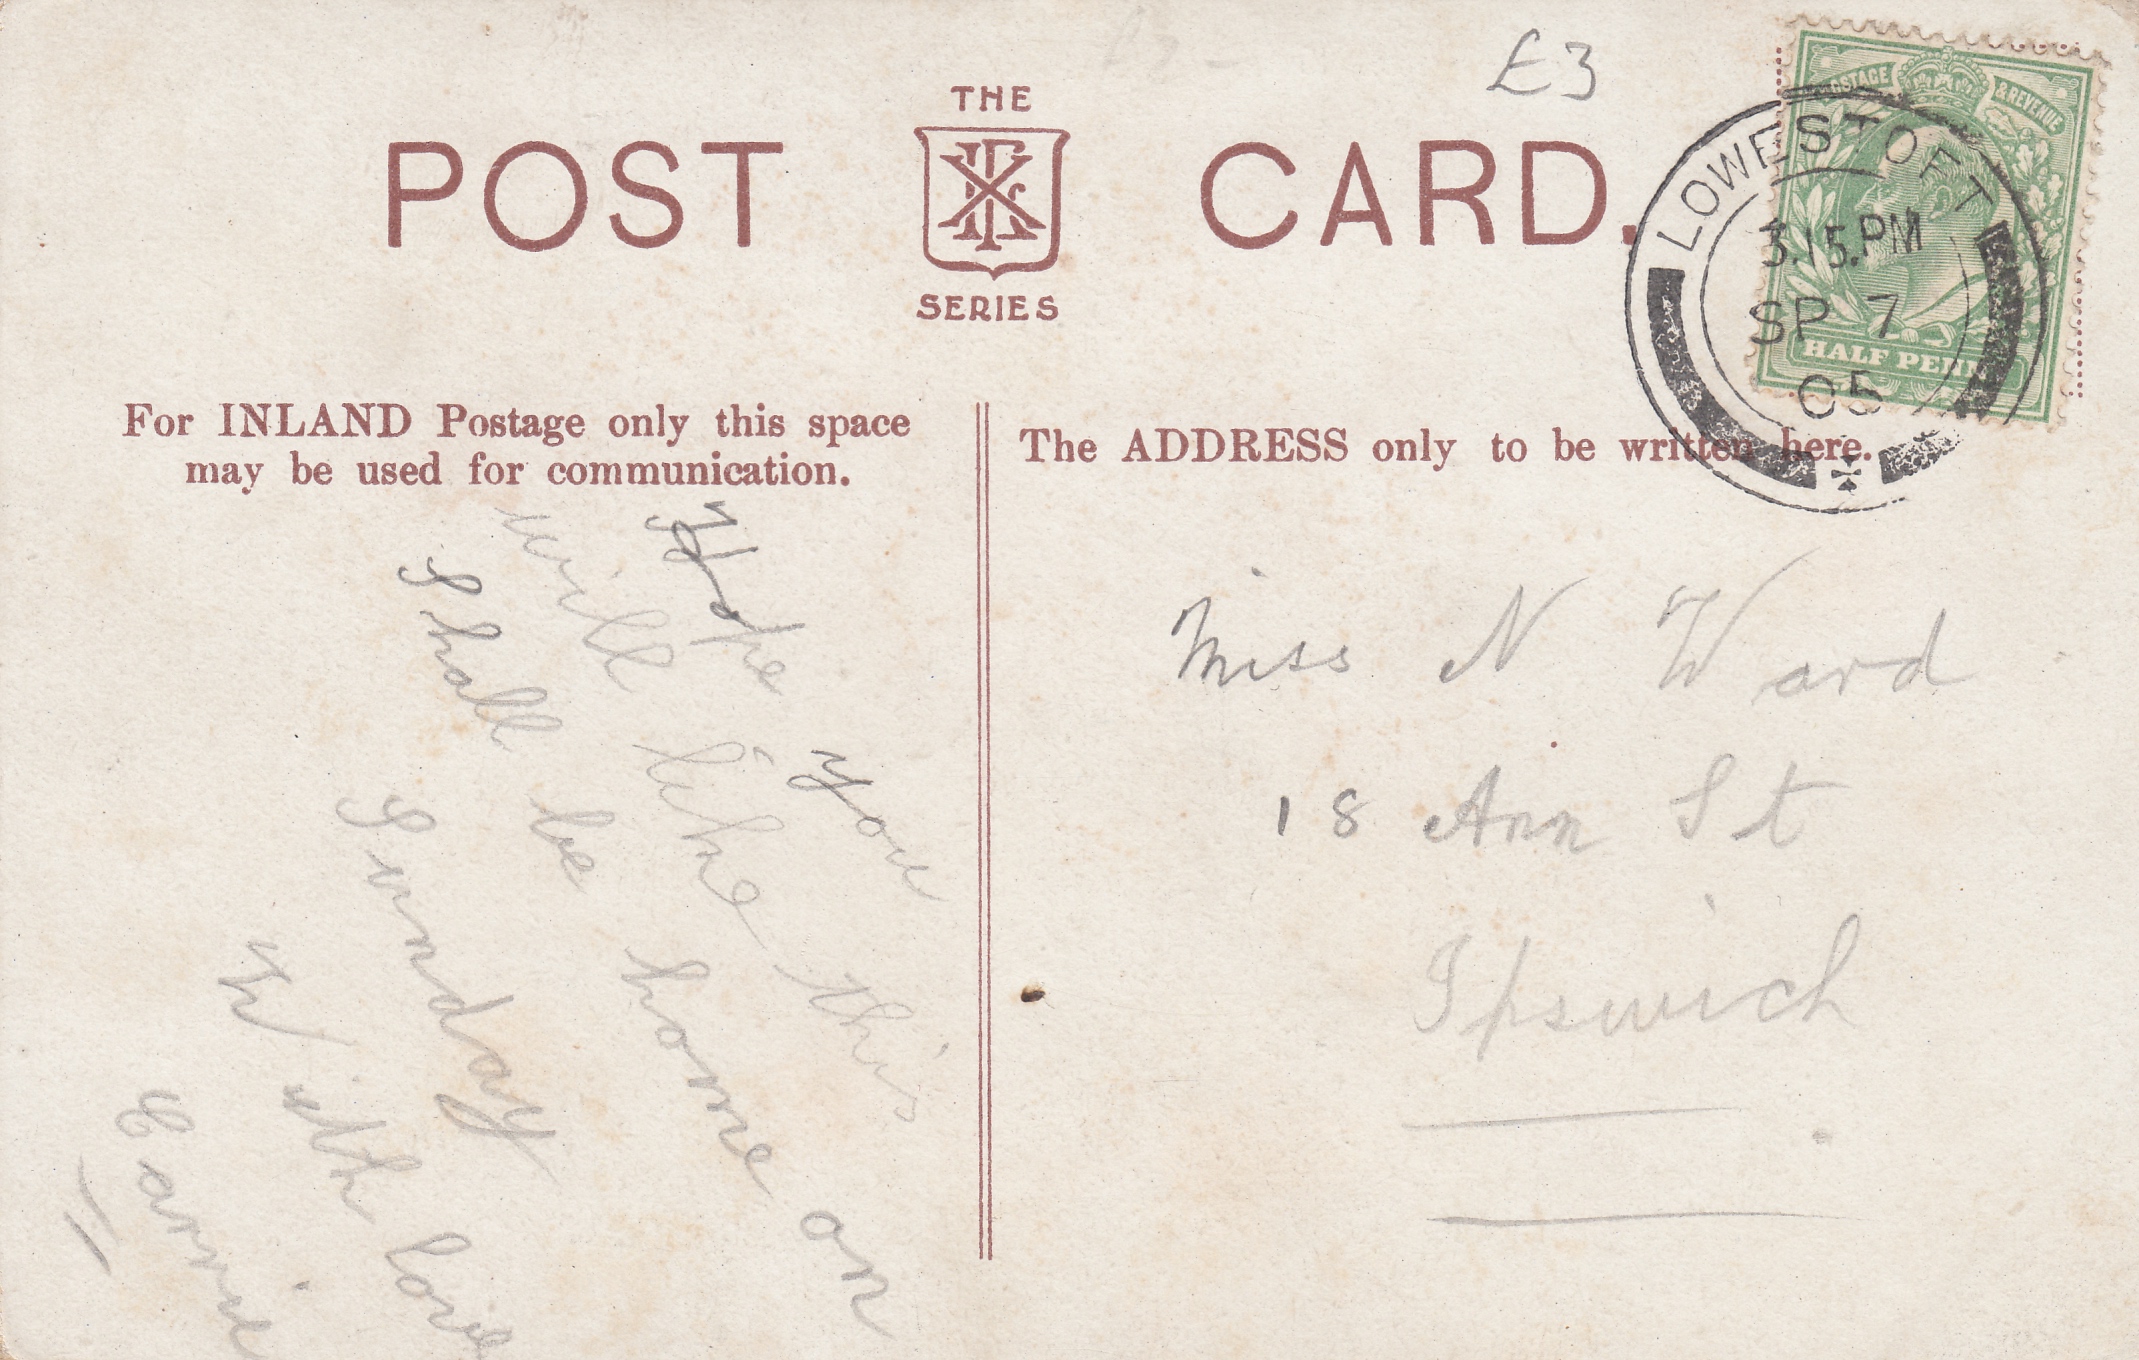 £3
THE
POST CARD.
SERIES
POSTAGE & REVENUE
HALF PENNY
LOWESTOFT
3.15.PM
SP 7
05
For INLAND Postage only this space
may be used for communication.
The ADDRESS only to be written here.
Hope you
will like this
shall be home on
Sunday
With love
Carrie
Miss N Ward
18 Ann St
Ipswich